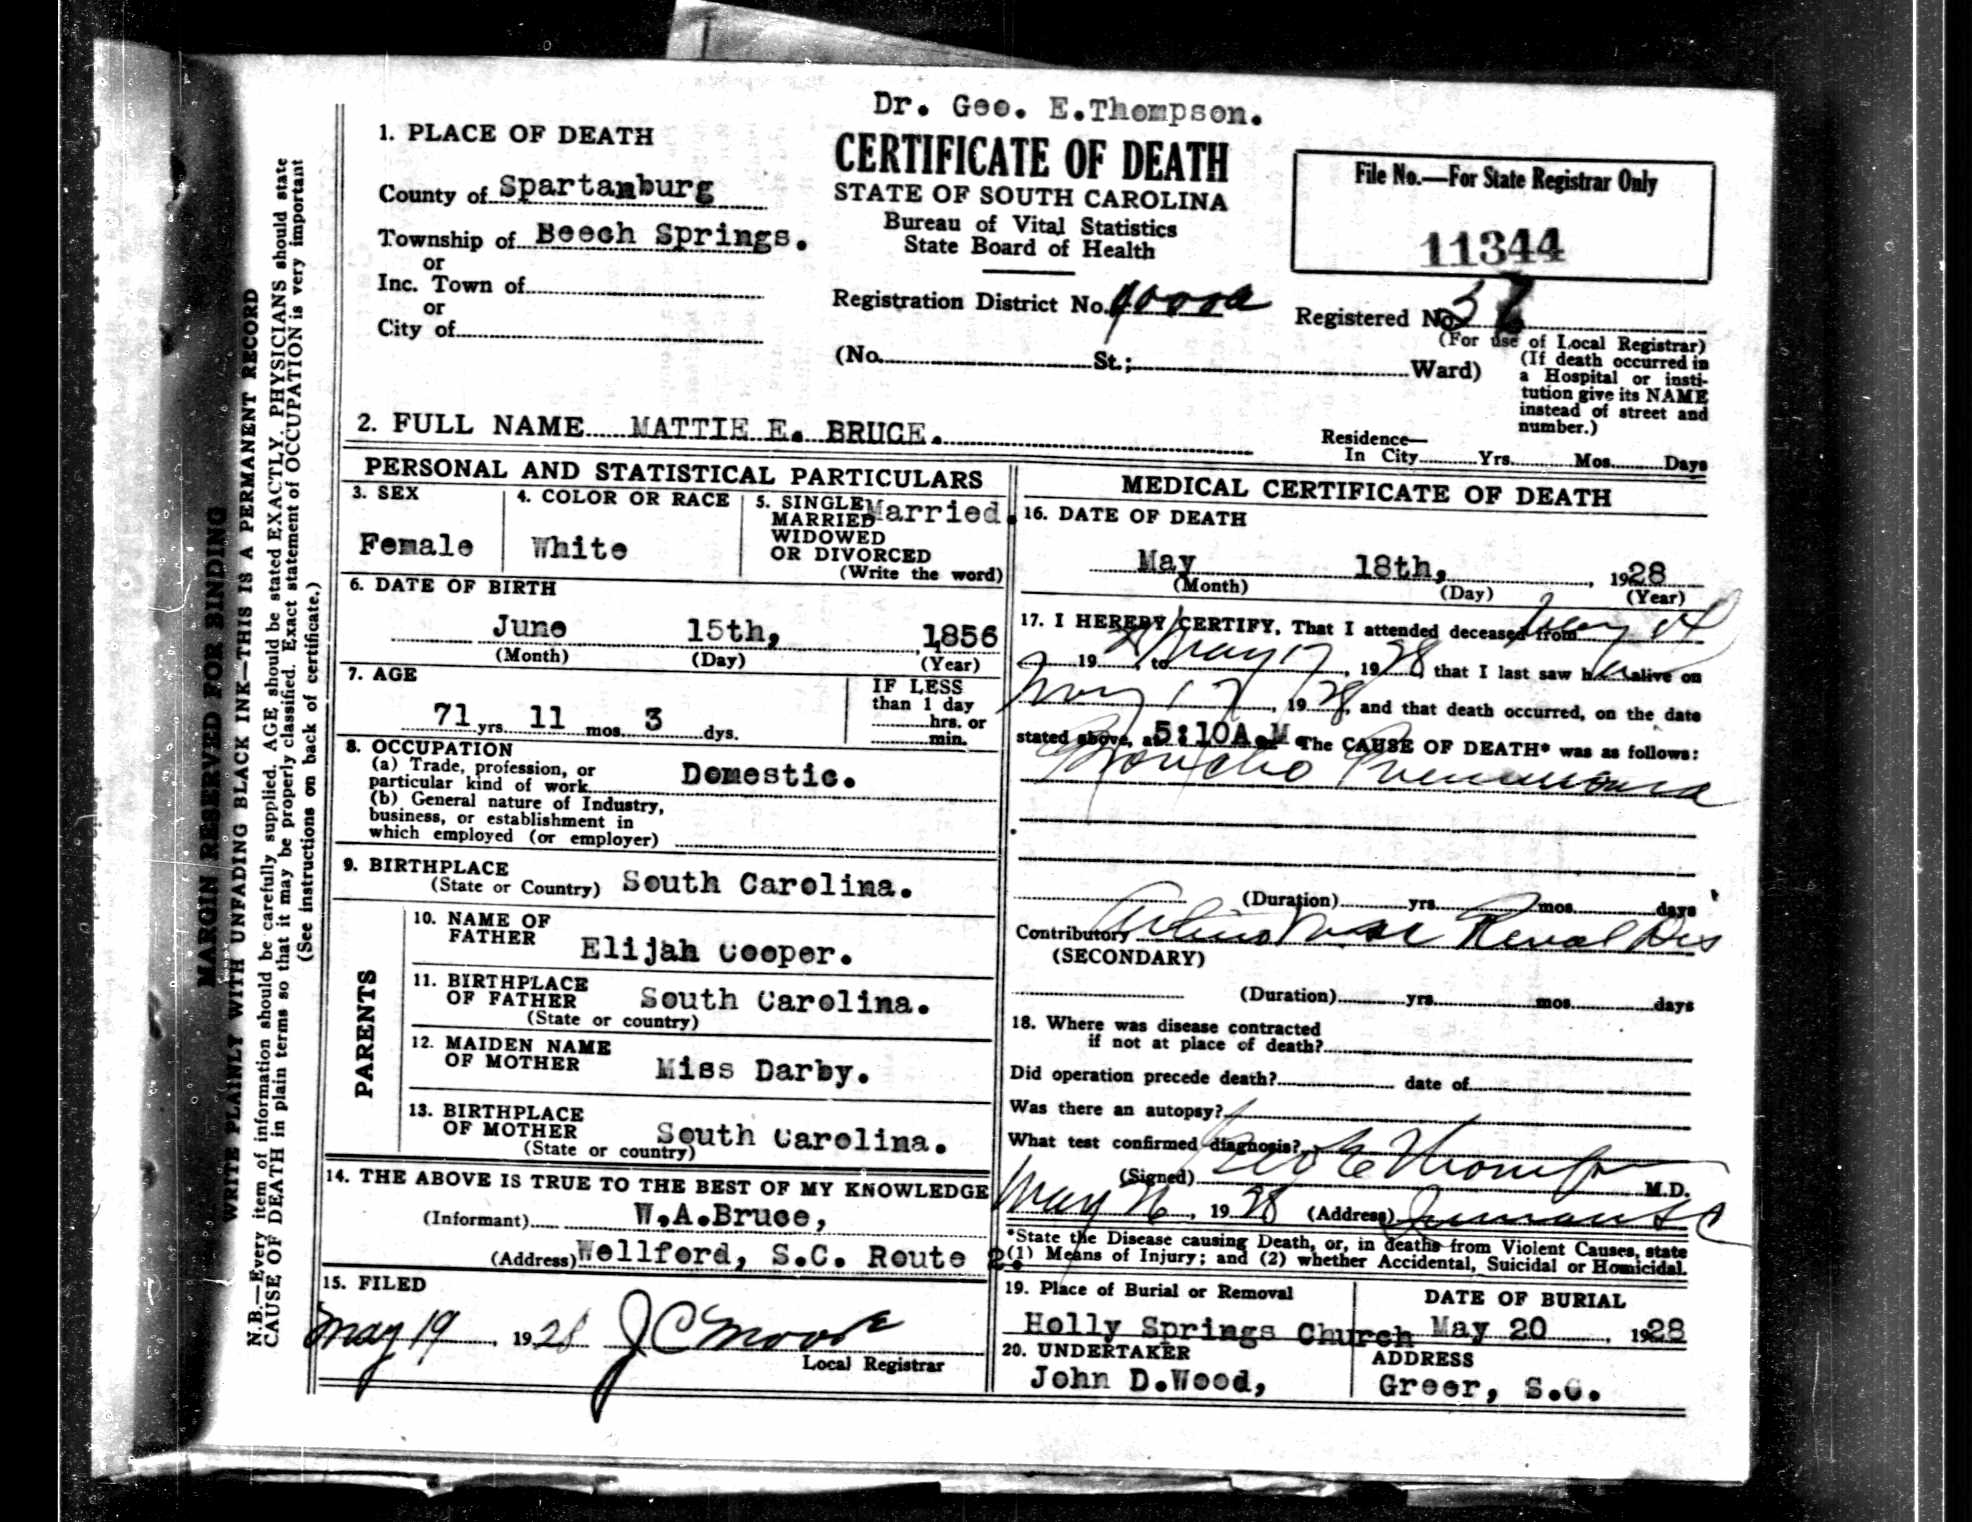 Dr. Geo. E.Thompson.
1. PLACE OF DEATH
County of Spartanburg
Township of Beech Springs.
or
Inc. Town of
or
City of
CERTIFICATE OF DEATH
STATE OF SOUTH CAROLINA
Bureau of Vital Statistics
State Board of Health
Registration District No.
(No. St.; Ward)
File No.—For State Registrar Only
11344
Registered No. 37
(For use of Local Registrar)
(If death occurred in
a Hospital or insti-
tution give its NAME
instead of street and
number.)
2. FULL NAME MATTIE E. BRUCE.
Residence—
In City Yrs. Mos. Days
PERSONAL AND STATISTICAL PARTICULARS
3. SEX
Female
4. COLOR OR RACE
White
5. SINGLE Married.
MARRIED
WIDOWED
OR DIVORCED
(Write the word)
6. DATE OF BIRTH
June 15th, 1856
(Month) (Day) (Year)
7. AGE
71 yrs. 11 mos. 3 dys.
IF LESS
than 1 day
hrs. or
min.
8. OCCUPATION
(a) Trade, profession, or
particular kind of work Domestic.
(b) General nature of Industry,
business, or establishment in
which employed (or employer)
9. BIRTHPLACE
(State or Country) South Carolina.
PARENTS
10. NAME OF
FATHER Elijah Cooper.
11. BIRTHPLACE
OF FATHER South Carolina.
(State or country)
12. MAIDEN NAME
OF MOTHER Miss Darby.
13. BIRTHPLACE
OF MOTHER South Carolina.
(State or country)
14. THE ABOVE IS TRUE TO THE BEST OF MY KNOWLEDGE
(Informant) W.A.Bruce,
(Address) Wellford, S.C. Route 2.
15. FILED
May 19, 1928 J C Moore
Local Registrar
MEDICAL CERTIFICATE OF DEATH
16. DATE OF DEATH
May 18th, 1928
(Month) (Day) (Year)
17. I HEREBY CERTIFY, That I attended deceased from May 14
19 to May 17, 1928, that I last saw her alive on
May 17, 1928, and that death occurred, on the date
stated above, at 5:10A.M. The CAUSE OF DEATH* was as follows:
Broncho Pneumonia
(Duration) yrs. mos. days
Contributory Renal Dis
(SECONDARY)
(Duration) yrs. mos. days
18. Where was disease contracted
if not at place of death?
Did operation precede death? date of
Was there an autopsy?
What test confirmed diagnosis?
(Signed) Geo E Thompson M.D.
May 26, 1928 (Address) Inman S C
*State the Disease causing Death, or, in deaths from Violent Causes, state
(1) Means of Injury; and (2) whether Accidental, Suicidal or Homicidal.
19. Place of Burial or Removal
Holly Springs Church
DATE OF BURIAL
May 20, 1928
20. UNDERTAKER
John D.Wood,
ADDRESS
Greer, S.C.
MARGIN RESERVED FOR BINDING
WRITE PLAINLY WITH UNFADING BLACK INK—THIS IS A PERMANENT RECORD
N.B.—Every item of information should be carefully supplied. AGE should be stated EXACTLY. PHYSICIANS should state
CAUSE OF DEATH in plain terms so that it may be properly classified. Exact statement of OCCUPATION is very important
(See instructions on back of certificate.)